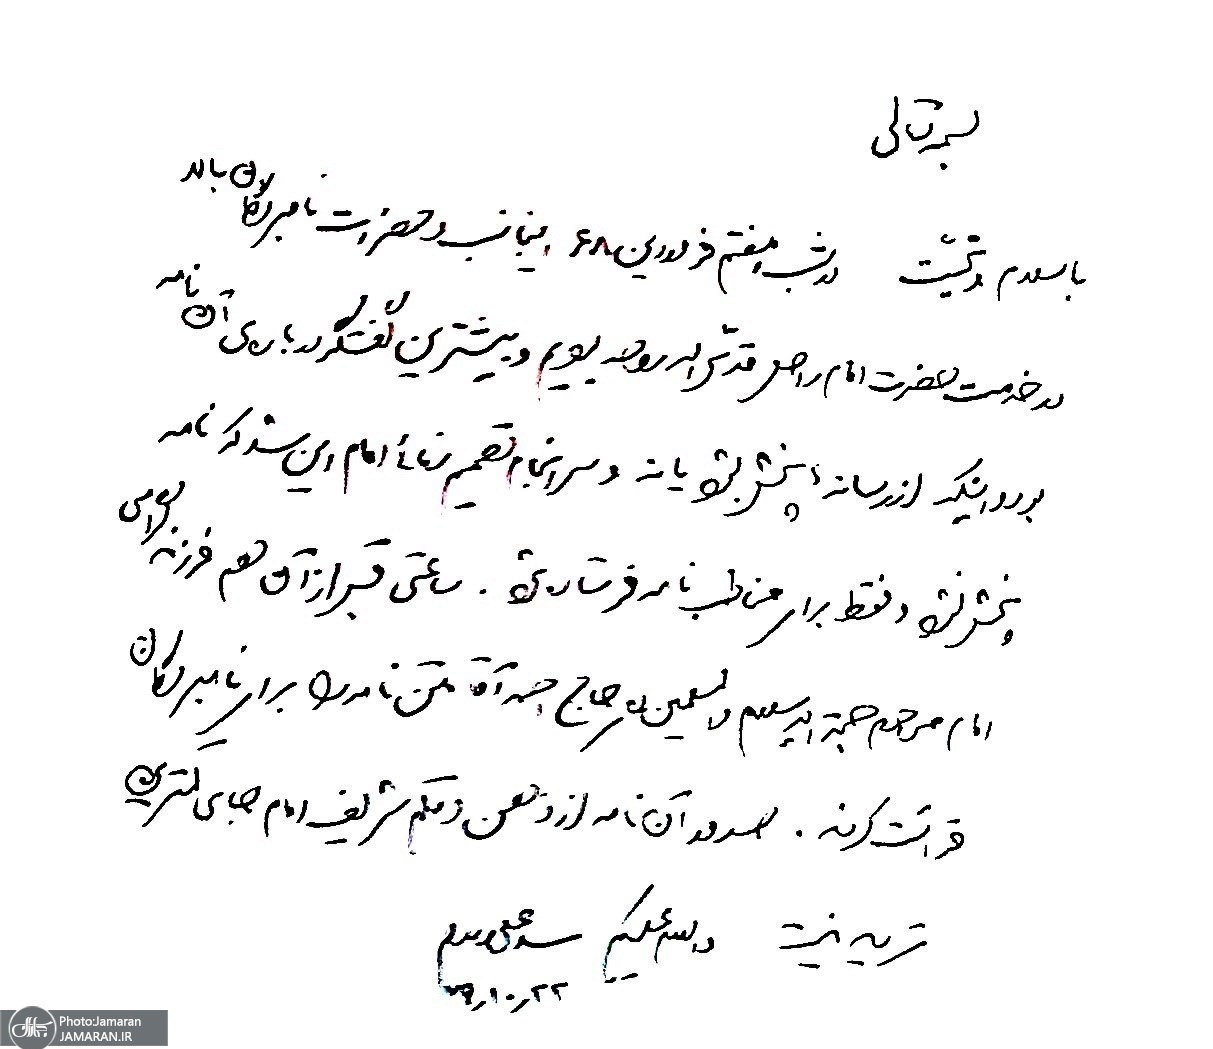 بسمه تعالی
با سلام و تحیّت در شب هفتم فروردین ۶۸ اینجانب و حضرات نامبردگان بالا
در خدمت حضرت امام راحل قدّس الله روحه بودیم و بیشترین گفتگو درباره‌ی آن نامه
بود و اینکه از رسانه‌ها پخش بشود یا نه و سرانجام تصمیم امام این شد که نامه
پخش نشود و فقط برای مخاطب نامه فرستاده شود. ساعتی قبل از آن هم فرزند گرامی
امام مرحوم حجة الاسلام والمسلمین حاج احمد آقا متن نامه را برای نامبردگان
قرائت کردند. صدور آن نامه از ذهن و قلم شریف امام جای کمترین
تردید نیست والسلام علیکم سید علی
۷۹،۱۰،۲۲
Photo:Jamaran
JAMARAN.IR